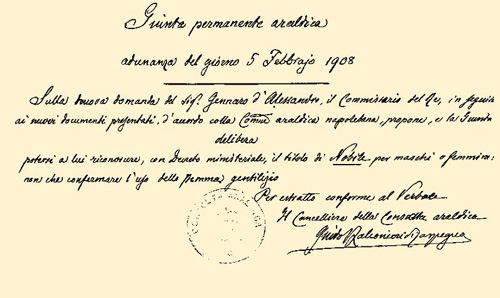 Giunta permanente araldica
adunanza del giorno 5 Febbrajo 1908
Sulla nuova domanda del Sigr. Gennaro d'Alessandro, il Commissario del Re, in seguito
ai nuovi documenti presentati, d'accordo colla Comm.e araldica napoletana, propone, e la Giunta
delibera
potersi a lui riconoscere, con Decreto ministeriale, il titolo di Nobile per maschi e femmine:
non che confermare l'uso dello stemma gentilizio
Per estratto conforme al Verbale
Il Cancelliere della Consulta araldica
Guido
CONSULTA ARALDICA